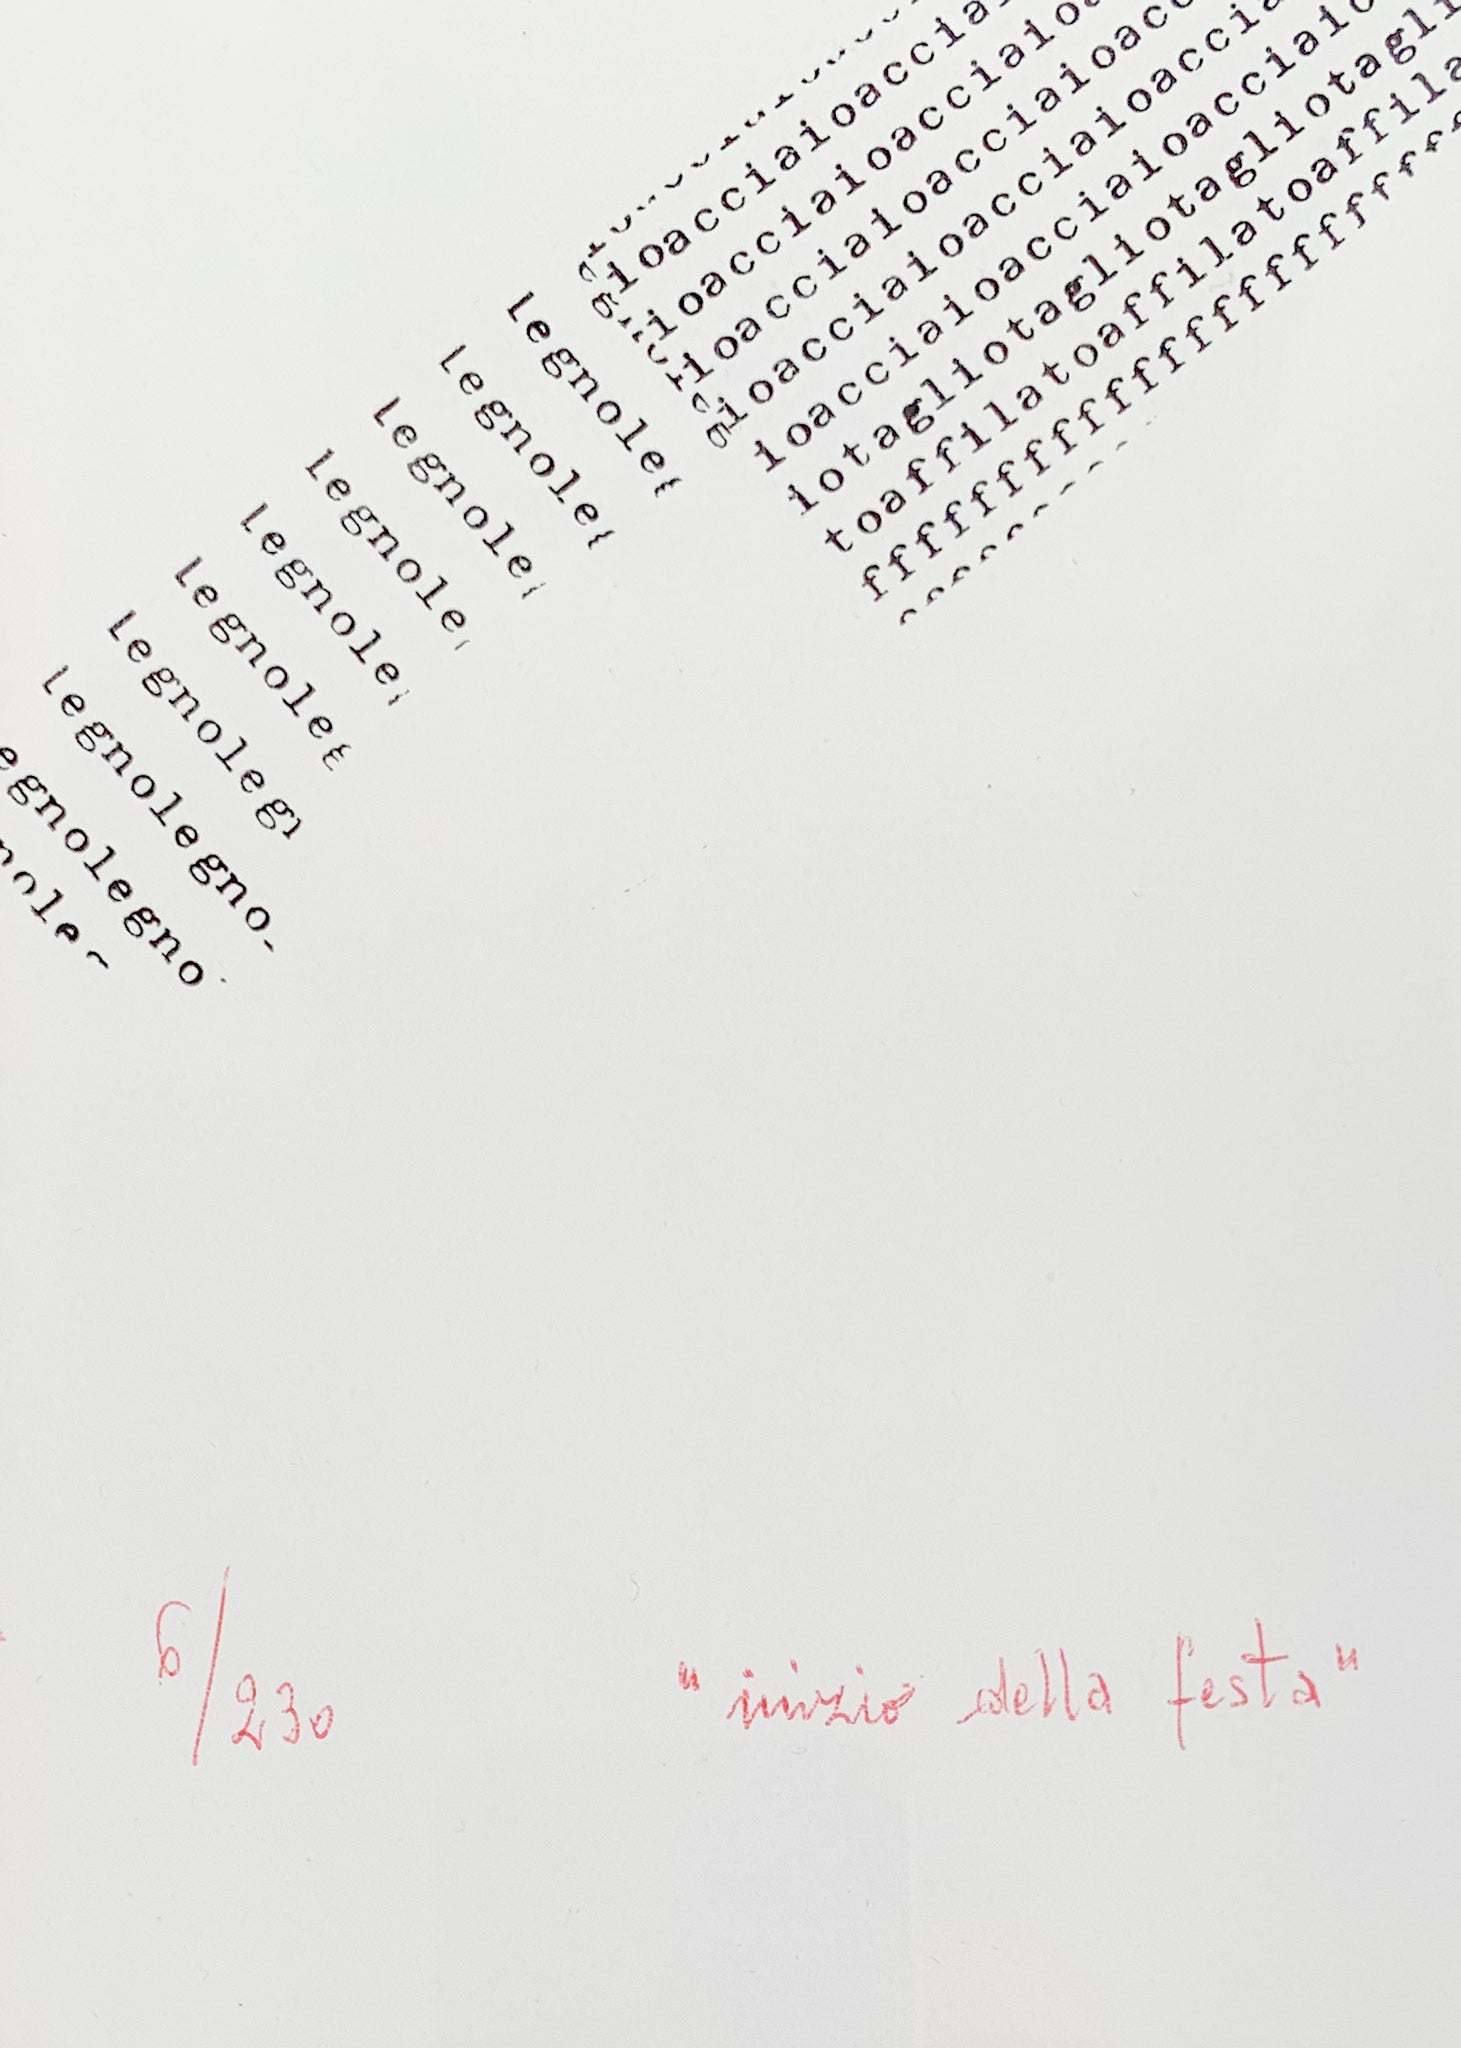 ioacciaioaccia
ioacciaioacciaio
ioacciaioacciaioacc
ioacciaioacciaioaccia
ioacciaioacciaioacciaio
iotagliotagliotagli
toaffilatoaffila
ffffffffffffffffffff
legnole
legnole
legnole
legnole
legnole
legnole
legnoleg
legnolegno
egnolegno
nole
6/230
"inizio della festa"